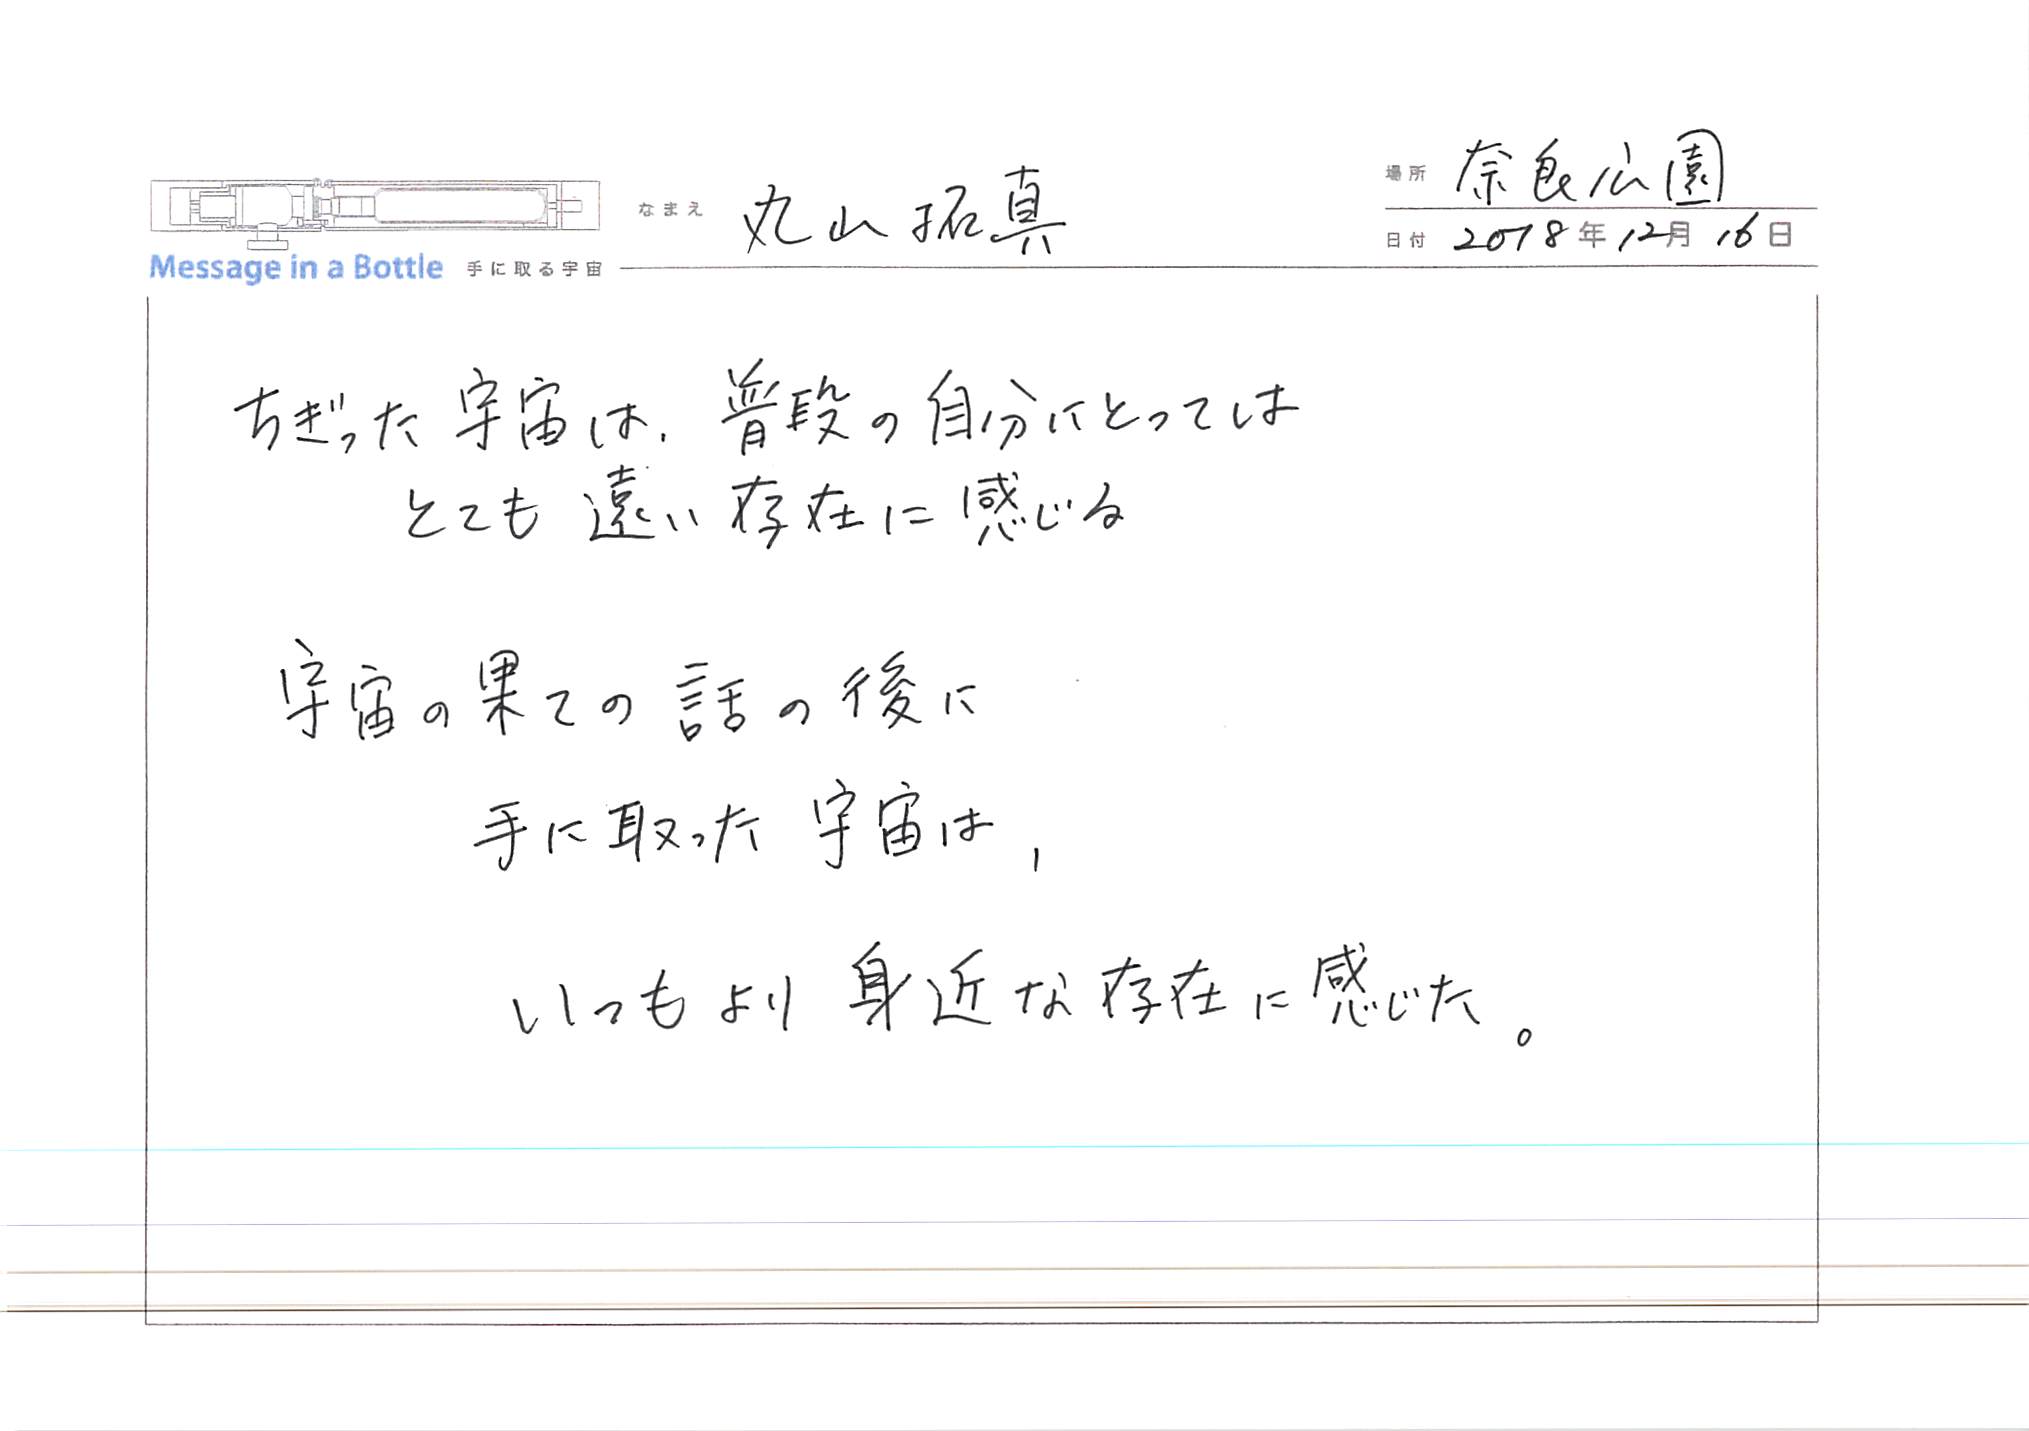 場所 奈良公園
なまえ 丸山拓真
日付 2018年12月16日
Message in a Bottle 手に取る宇宙
ちぎった宇宙は、普段の自分にとっては
とても遠い存在に感じる
宇宙の果ての話の後に
手に取った宇宙は,
いつもより身近な存在に感じた。